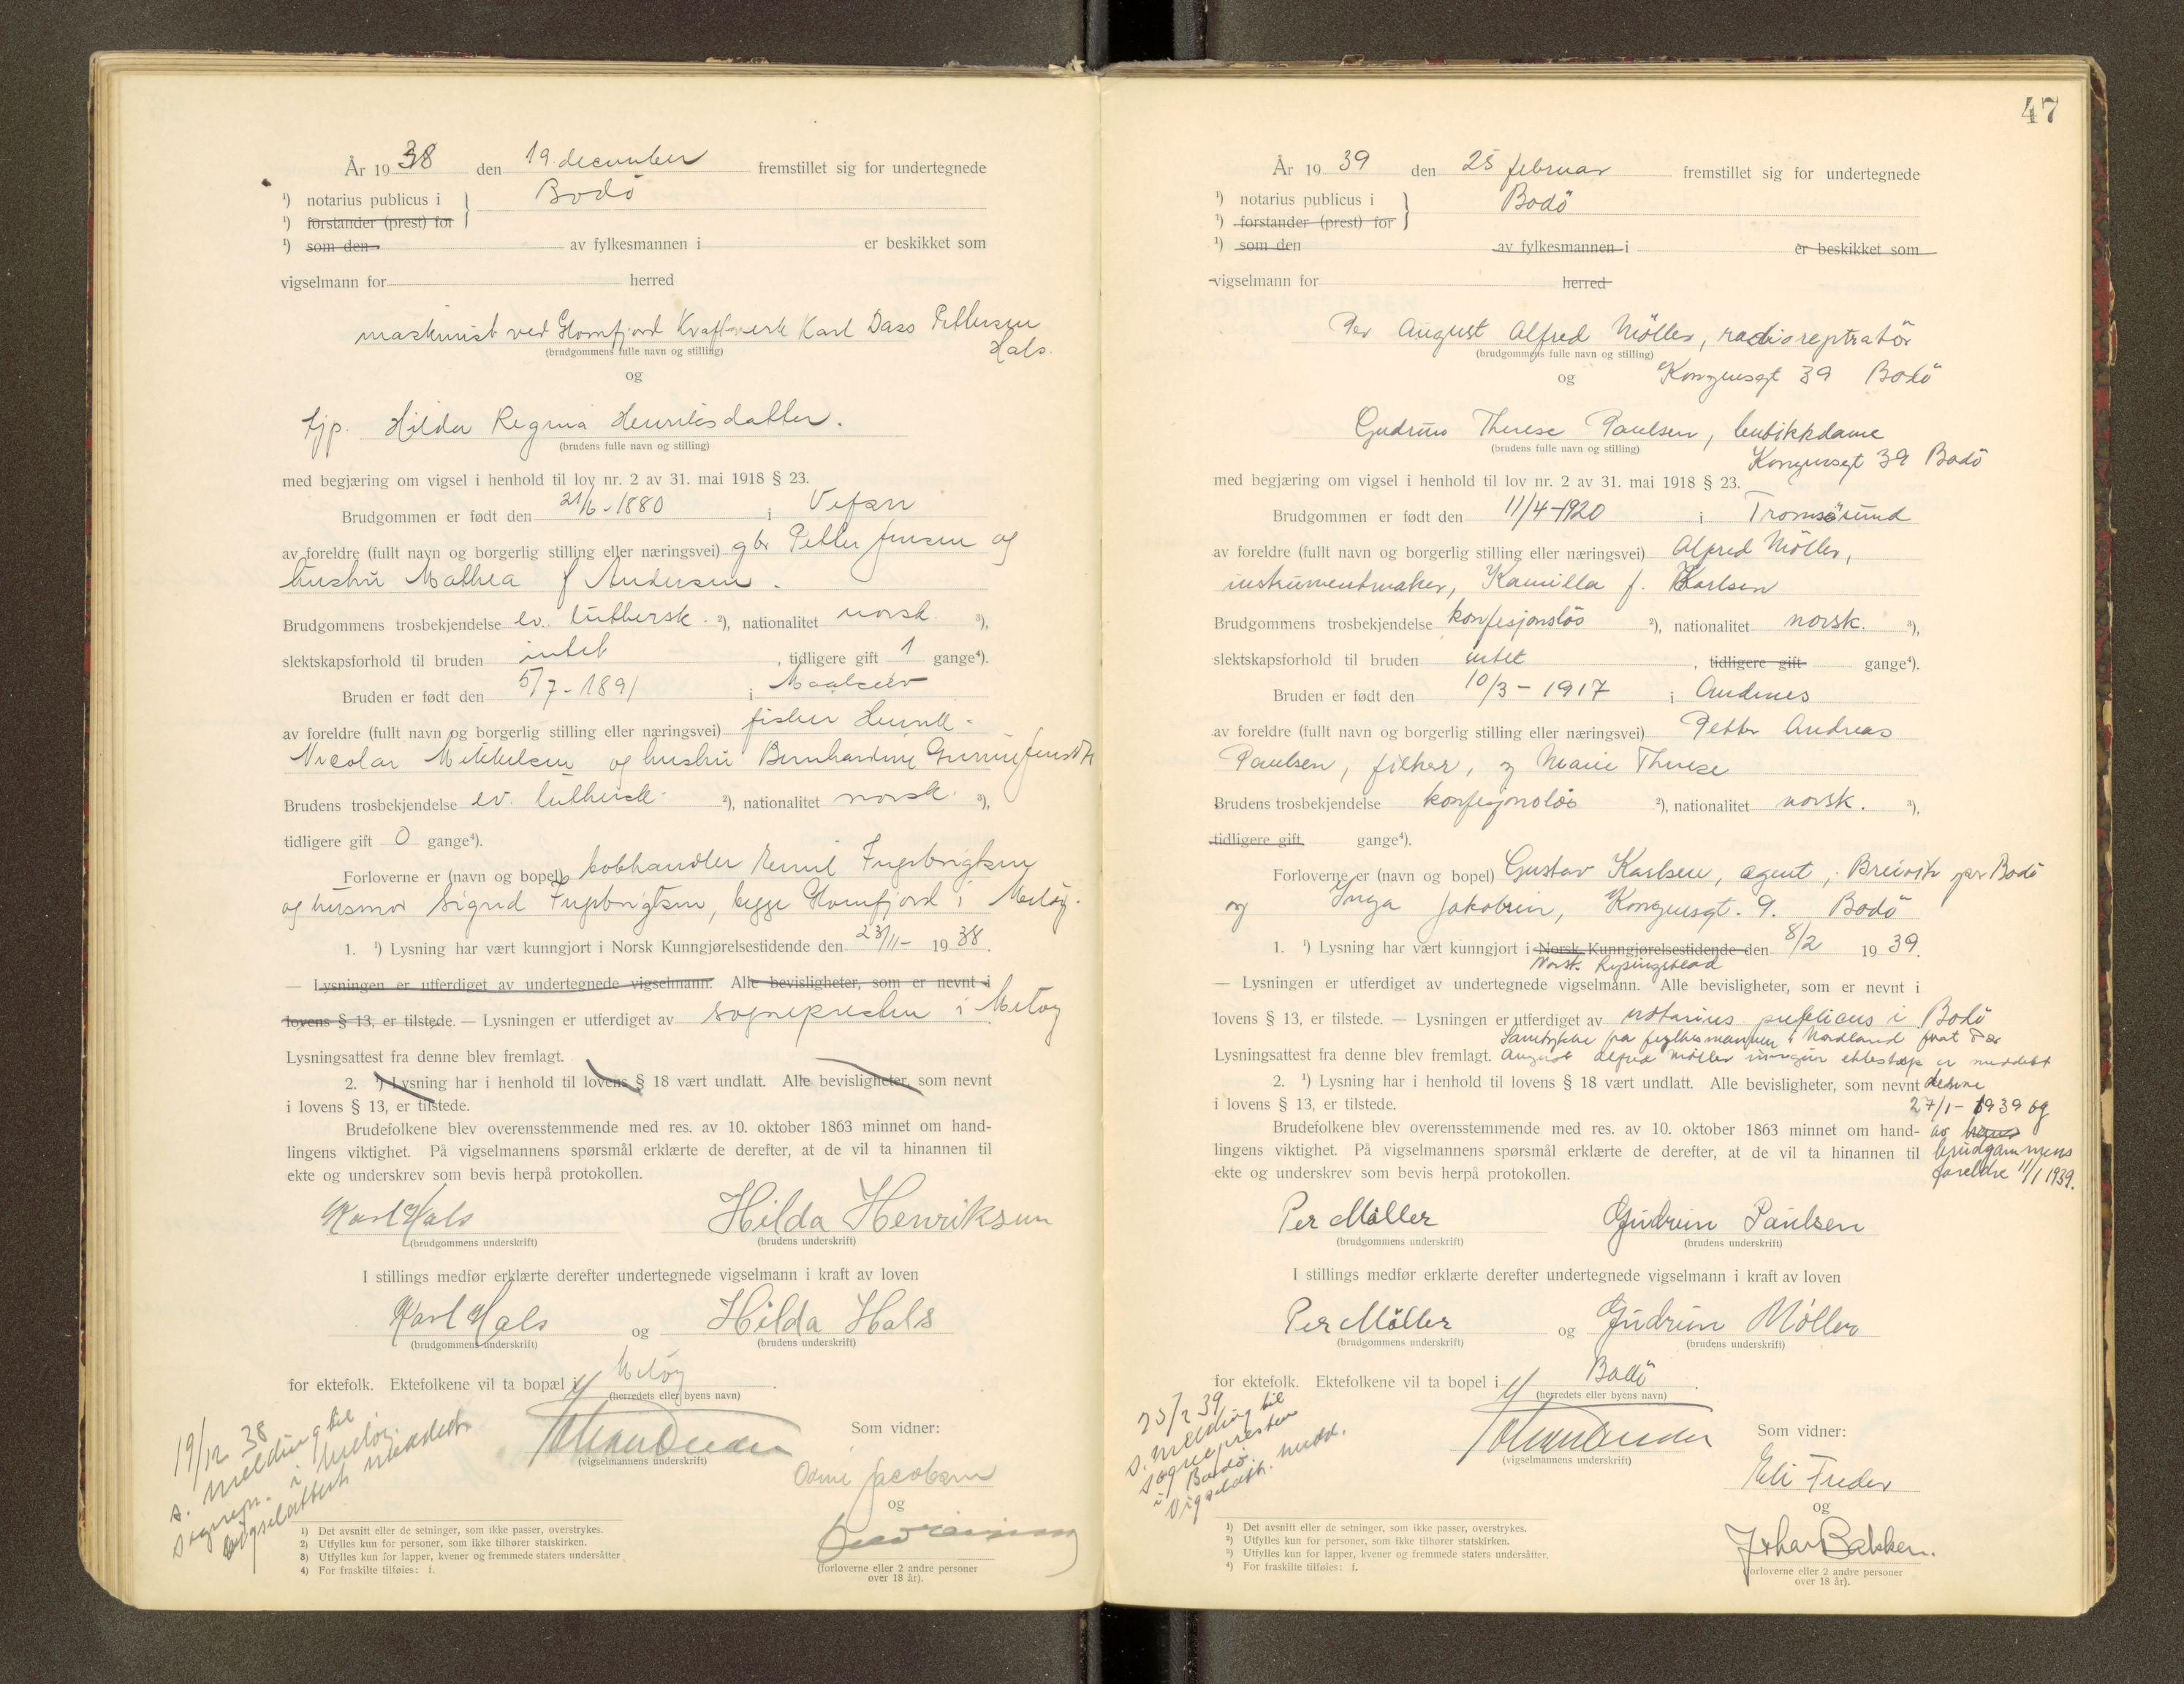 År 1938 den 19. december fremstillet sig for undertegnede
¹) notarius publicus i Bodö
¹) forstander (prest) for
¹) som den av fylkesmannen i er beskikket som
vigselmann for herred
maskinist ved Glomfjord Kraftverk Karl Dass Pettersen
Hals.
(brudgommens fulle navn og stilling)
og
tjp. Hilda Regina Henriksdatter.
(brudens fulle navn og stilling)
med begjæring om vigsel i henhold til lov nr. 2 av 31. mai 1918 § 23.
Brudgommen er født den 21/6-1880 i Vefsn
av foreldre (fullt navn og borgerlig stilling eller næringsvei) gbr Petter Jensen og
hustru Mathea f Andersen.
Brudgommens trosbekjendelse ev. luthersk. ²), nationalitet norsk. ³),
slektskapsforhold til bruden intet, tidligere gift 1 gange⁴).
Bruden er født den 5/7-1891 i Maalselv
av foreldre (fullt navn og borgerlig stilling eller næringsvei) fisker Henrik
Nicolai Mikkelsen og hustru Bernhardine
Brudens trosbekjendelse ev. luthersk ²), nationalitet norsk. ³),
tidligere gift 0 gange⁴).
Forloverne er (navn og bopel) Emil Ingebrigtsen
og husmor Sigrid Ingebrigtsen, begge Glomfjord i Meløy.
1. ¹) Lysning har vært kunngjort i Norsk Kunngjørelsestidende den 23/11- 1938.
— Lysningen er utferdiget av undertegnede vigselmann. Alle bevisligheter, som er nevnt i
lovens § 13, er tilstede. — Lysningen er utferdiget av sognepresten i Meløy
Lysningsattest fra denne blev fremlagt.
2. ¹) Lysning har i henhold til lovens § 18 vært undlatt. Alle bevisligheter, som nevnt
i lovens § 13, er tilstede.
Brudefolkene blev overensstemmende med res. av 10. oktober 1863 minnet om hand-
lingens viktighet. På vigselmannens spørsmål erklærte de derefter, at de vil ta hinannen til
ekte og underskrev som bevis herpå protokollen.
Karl Hals Hilda Henriksen
(brudgommens underskrift) (brudens underskrift)
I stillings medfør erklærte derefter undertegnede vigselmann i kraft av loven
Karl Hals og Hilda Hals
(brudgommens underskrift) (brudens underskrift)
for ektefolk. Ektefolkene vil ta bopæl i Meløy
(herredets eller byens navn)
Som vidner:
(vigselmannens underskrift)
Jacobsen
og
(forloverne eller 2 andre personer
over 18 år).
19/12 38
s. melding til
sognepr. i Meløy.
vigselattest meddelt
1) Det avsnitt eller de setninger, som ikke passer, overstrykes.
2) Utfylles kun for personer, som ikke tilhører statskirken.
3) Utfylles kun for lapper, kvener og fremmede staters undersåtter
4) For fraskilte tilføies: f.
47
År 1939 den 25 februar fremstillet sig for undertegnede
¹) notarius publicus i Bodö
¹) forstander (prest) for
¹) som den av fylkesmannen i er beskikket som
vigselmann for herred
Per August Alfred Möller, radioreptratör
(brudgommens fulle navn og stilling)
og Kongensgt 39 Bodö
Gudrun Therese Paulsen, butikkdame
(brudens fulle navn og stilling)
Kongensgt 39 Bodö
med begjæring om vigsel i henhold til lov nr. 2 av 31. mai 1918 § 23.
Brudgommen er født den 11/4-1920 i Tromsösund
av foreldre (fullt navn og borgerlig stilling eller næringsvei) Alfred Möller,
instrumentmaker, Kamilla f. Karlsen
Brudgommens trosbekjendelse konfesjonslös ²), nationalitet norsk. ³),
slektskapsforhold til bruden intet, tidligere gift gange⁴).
Bruden er født den 10/3-1917 i Andenes
av foreldre (fullt navn og borgerlig stilling eller næringsvei) Petter Andreas
Paulsen, fisker, og Marie Therese
Brudens trosbekjendelse konfesjonslös ²), nationalitet norsk. ³),
tidligere gift gange⁴).
Forloverne er (navn og bopel) Gustav Karlsen, agent, Breivik per Bodö
og Inga Jakobsen, Kongensgt. 9. Bodö
1. ¹) Lysning har vært kunngjort i Norsk Kunngjørelsestidende den 8/2 1939.
Norsk Lysingsblad
— Lysningen er utferdiget av undertegnede vigselmann. Alle bevisligheter, som er nevnt i
lovens § 13, er tilstede. — Lysningen er utferdiget av notarius publicus i Bodö
Samtykke fra fylkesmannen i Nordland for at Per
Lysningsattest fra denne blev fremlagt. August Alfred Möller inngår ekteskap er meddelt
2. ¹) Lysning har i henhold til lovens § 18 vært undlatt. Alle bevisligheter, som nevnt denne
i lovens § 13, er tilstede. 27/1-1939 og
Brudefolkene blev overensstemmende med res. av 10. oktober 1863 minnet om hand- av
lingens viktighet. På vigselmannens spørsmål erklærte de derefter, at de vil ta hinannen til brudgommens
ekte og underskrev som bevis herpå protokollen. foreldre 11/1 1939.
Per Möller Gudrun Paulsen
(brudgommens underskrift) (brudens underskrift)
I stillings medfør erklærte derefter undertegnede vigselmann i kraft av loven
Per Möller og Gudrun Möller
(brudgommens underskrift) (brudens underskrift)
for ektefolk. Ektefolkene vil ta bopel i Bodö
(herredets eller byens navn)
Som vidner:
(vigselmannens underskrift)
og
(forloverne eller 2 andre personer
over 18 år).
25/2 39
s. melding til
sognepresten
i Bodö.
Vigselatt. medd.
1) Det avsnitt eller de setninger, som ikke passer, overstrykes.
2) Utfylles kun for personer, som ikke tilhører statskirken.
3) Utfylles kun for lapper, kvener og fremmede staters undersåtter.
4) For fraskilte tilføies: f.